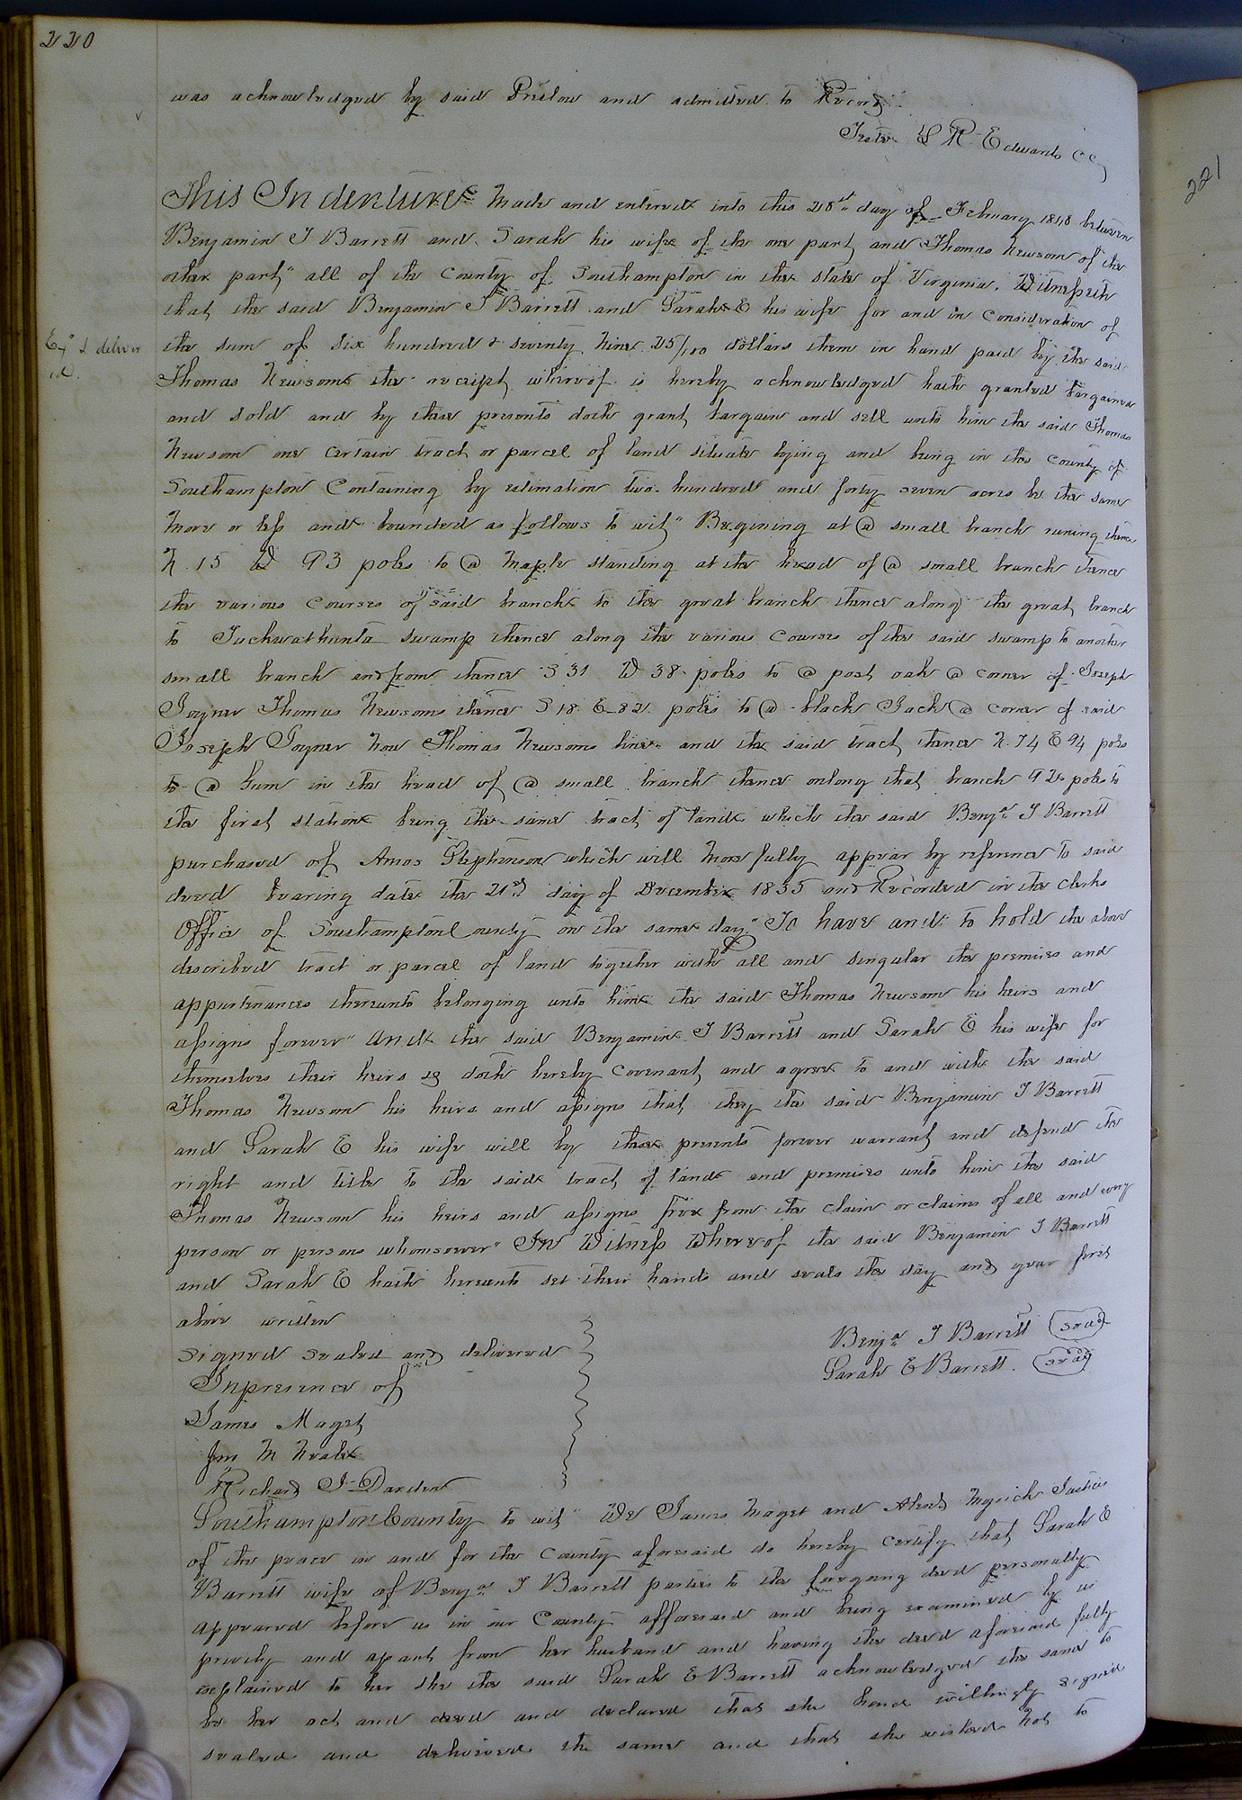 220
was acknowledged by said Prelow and admitted to Record
Teste L R Edwards CC
221
This Indenture Made and entered into this 28th day of February 1848 between
Benjamin T Barrett and Sarah his wife of the one part and Thomas Newsom of the
other part" all of the County of Southampton in the state of Virginia. Witnesseth
that the said Benjamin T Barrett and Sarah E his wife for and in Consideration of
Exd & deliver
ed.
the sum of Six hundred & seventy Nine 25/100 dollars them in hand paid by the said
Thomas Newsom the receipt whereof is hereby acknowledged hath granted bargained
and sold and by these presents doth grant bargain and sell unto him the said Thomas
Newsom one certain tract or parcel of land situate lying and being in the County of
Southampton Containing by estimation two hundred and forty seven acres be the same
More or less and bounded as follows to wit" Begining at @ small branch runing thence
N. 15 W 93 poles to @ Maple standing at the head of @ small branch thence
the various Courses of said branch to the great branch thence along the great branch
to swamp thence along the various Courses of the said swamp to another
small branch and from thence S 31 W 38 poles to @ post oak @ corner of Joseph
Joyner Thomas Newsoms thence S 18 E 82 poles to @ black Jack @ corner of said
Joseph Joyner Now Thomas Newsoms line and the said tract thence N. 74 E 94 poles
to @ Gum in the head of @ small branch thence onlong that branch 92 poles to
the first station being the same tract of land which the said Benjn T Barrett
purchased of Amos Stephenson which will More fully appear by reference to said
deed bearing date the 21st day of December 1835 and Recorded in the clerks
Office of Southampton County on the same day" To have and to hold the above
described tract or parcel of land together with all and singular the premises and
appurtenances thereunto belonging unto him the said Thomas Newsom his heirs and
assigns forever" And the said Benjamin T Barrett and Sarah E his wife for
themselves their heirs &c doth hereby Covenant and agree to and with the said
Thomas Newsom his heirs and assigns that they the said Benjamin T Barrett
and Sarah E his wife will by these presents forever warrant and defend the
right and title to the said tract of land and premises unto him the said
Thomas Newsom his heirs and assigns free from the claim or claims of all and every
person or persons whomsoever" In Witness Whereof the said Benjamin T Barrett
and Sarah E hath hereunto set their hands and seals the day and year first
above written
Benjn T Barrett seal
signed sealed and delivered
Sarah E Barrett. seal
In presence of
James Maget
Jno M
Richard J Darden
Southampton County to wit" We James Maget and Myrick Justices
of the peace in and for the County aforesaid do hereby certify that Sarah E
Barrett wife of Benjn T Barrett parties to the forgoing deed personally
appeared before us in our County afforesaid and being examined by us
privily and apart from her husband and having the deed aforesaid fully
explained to her she the said Sarah E Barrett acknowledged the same to
be her act and deed and declared that she had willingly signed
sealed and delivered the same and that she wished not to